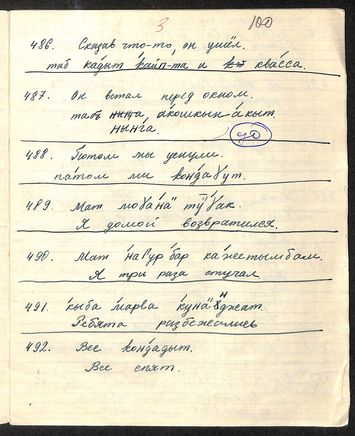 3 100
486. Сказав что-то, он ушёл.
таб ка́дыт ка́йп-та и ква́сса.
487. Он встал перед окном.
табъ а́кошкын-а́кыт.
нынга.
488. Потом мы уснули.
па́том ми конда́ɣут.
489. Мат
Я домой возвратился.
490. Мат на́гур бар ка́жетымбам.
Я три раза стучал
491. кыба ма́рва
Ребята разбежались
492. Все ко́ндадыт.
Все спят.